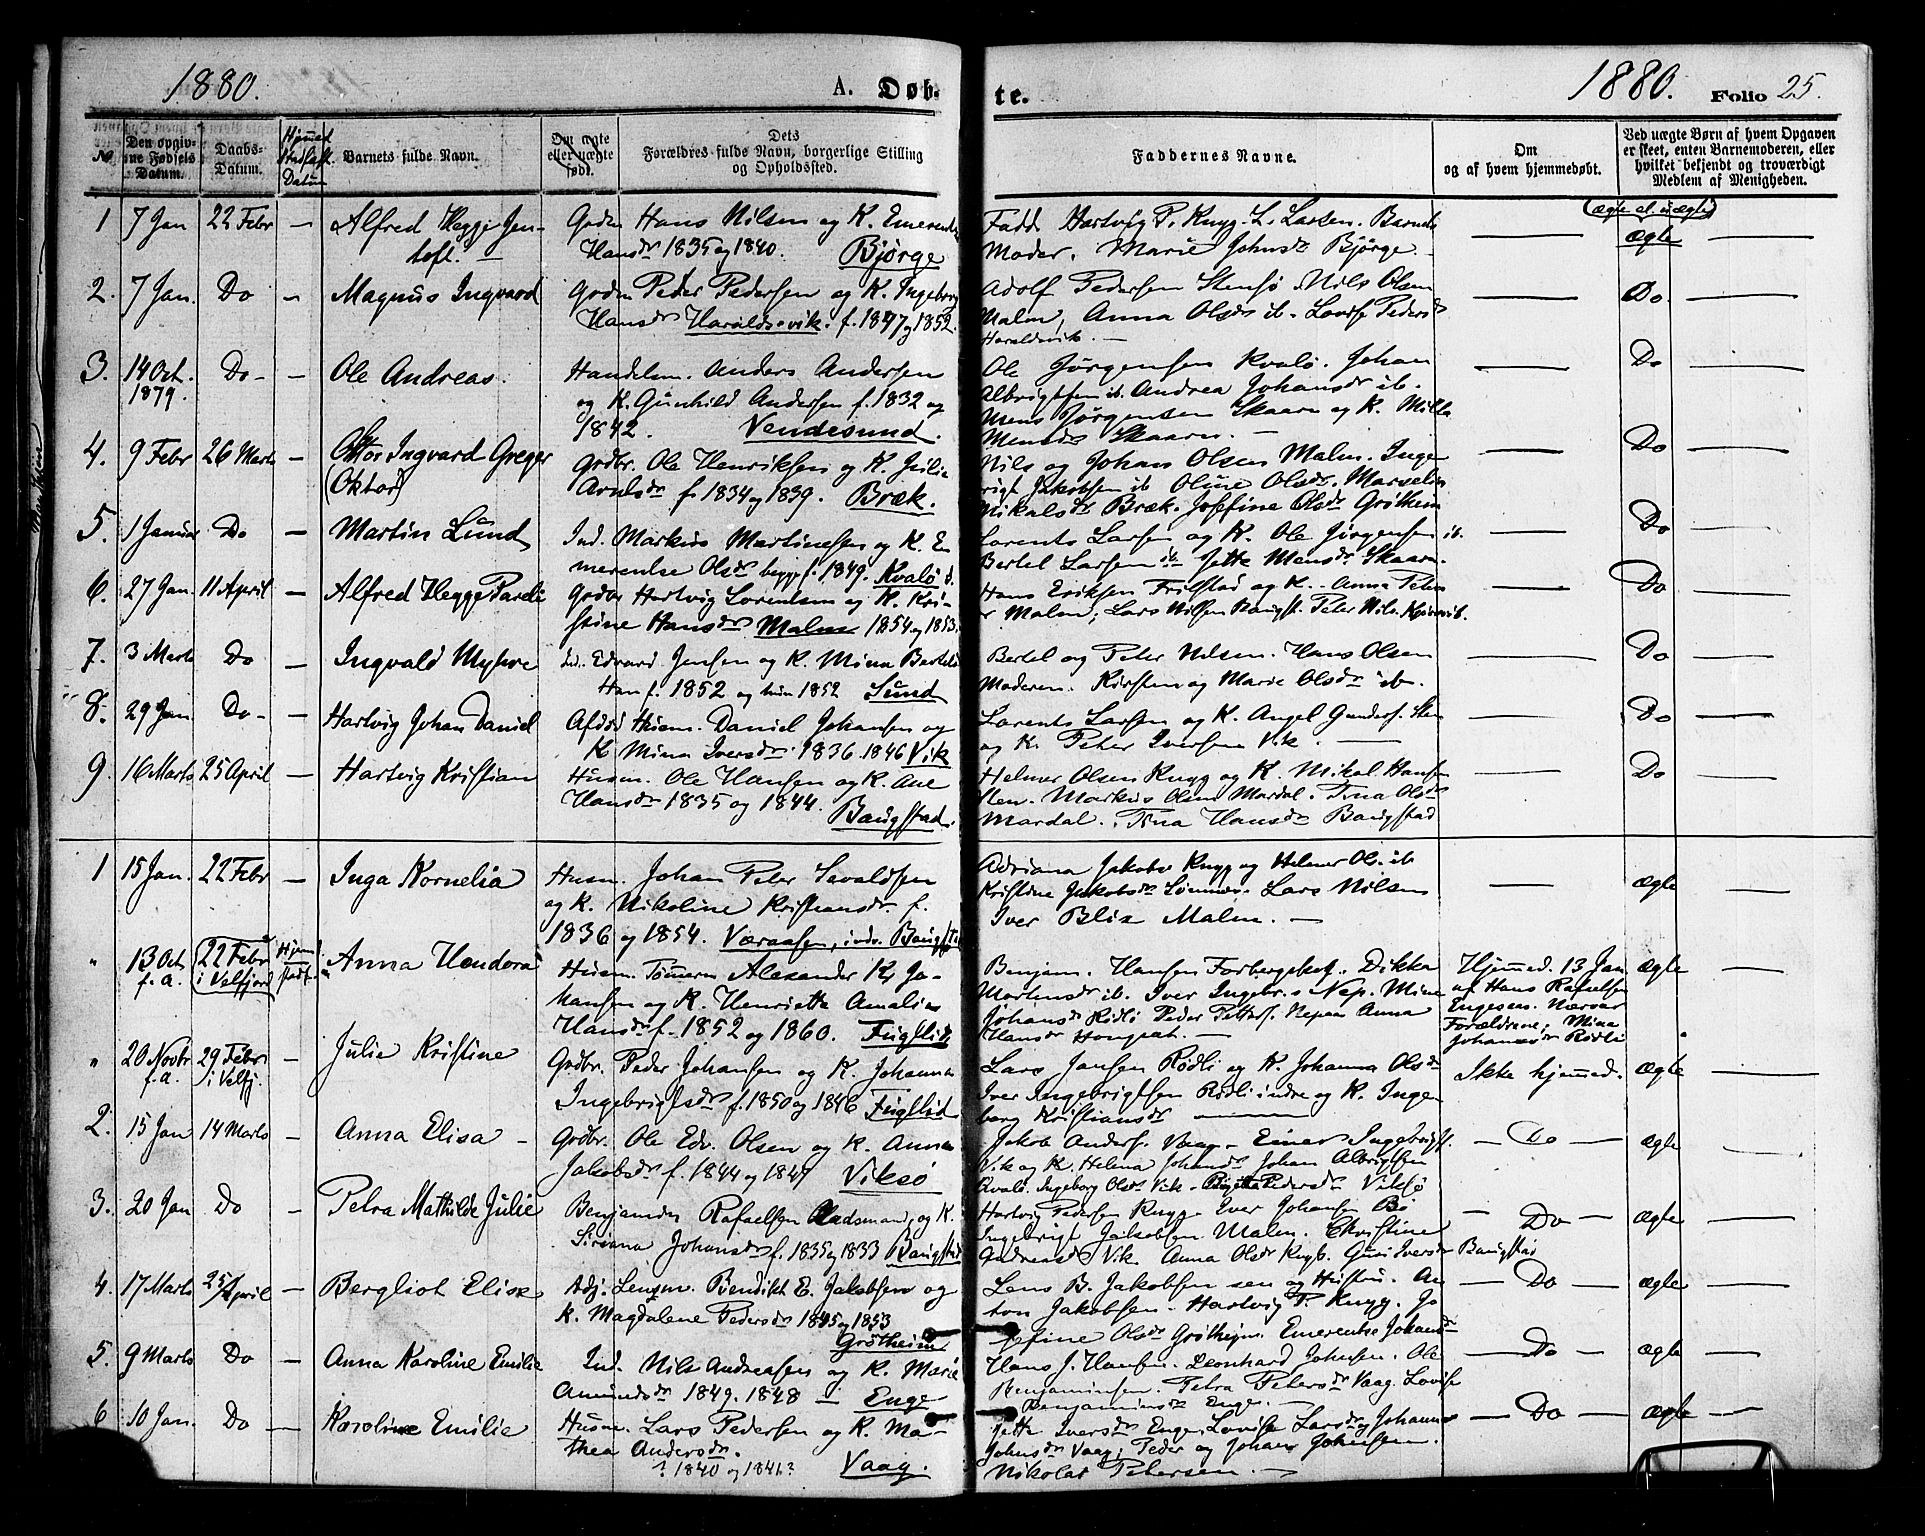 1880.
A. Døb-
te.
1880.
Folio 25.
No
Den opgivne Fødsels Datum.
Daabs-Datum.
Hjemmed. Stadfæst. Datum
Barnets fulde Navn.
Om ægte eller uægte født.
Dets Forældres fulde Navn, borgerlige Stilling og Opholdssted.
Faddernes Navne.
Om og af hvem hjemmedøbt.
Ved uægte Børn af hvem Opgaven er skeet, enten Barnemoderen, eller hvilket bekjendt og troværdigt Medlem af Menigheden.
(ægte el. uægte)
1 7 Jan 22 Febr — Alfred Hegge Jen-
toft.
Gdm Hans Nilsen og K. Emerentse
Hansdr 1835 og 1840. Bjørge
Fadd Hartvig P. Knyg. L. Larsen. Barnets
Moder. Marie Johnsdr Bjørge.
— ægte —
2. 7 Jan. Do — Magnus Ingvard
Gdm Peder Pedersen og K. Ingeborg
Hansdr Haraldsvik. f. 1847 og 1852.
Adolf Pedersen Stensø Nils Olsen
Malm, Anna Olsdr ib. Lovise Pedersdr
Haraldsvik. —
— Do —
3. 14 Oct. 1879. Do — — Ole Andreas.
Handelsm. Anders Andersen
og K. Gunhild Andersen f. 1832 og
1842. Vendesund.
Ole Jørgensen Kvalø. Johan
Albrigtsen ib. Andrea Johansdr ib.
Mens Jørgensen Skaarn og K. Milla
Mensdr Skaarn. —
— Do —
4. 9 Febr 26 Marts — Ottor Ingvard Greger
(Oktor)
Gdbr. Ole Henriksen og K. Julie
Arntsdr f. 1834 og 1839. Bræk.
Nils og Johan Olsen Malm. Inge
brigt Jakobsen ib Oline Olsdr. Marselie
Nikalsdr Bræk. Josefine Olsdr Grøtheim
— Do —
5. 1 Januar Do — Martin Lund
Ind. Markus Martinesen og K. E
merentse Olsdr begge f. 1849. Kvalø i.
Lorents Larsen og K. Ole Jørgensen ib.
Bertel Larsen ib Jette Mensdr Skaarn.
— Do —
6. 27 Jan. 11 April — Alfred Hegge Pareli
Gdbr Hartvig Lorentsen og K. Kri-
stine Hansdr Malm 1854 og 1853.
Hans Eriksen Frilstad og K. Anna Peters
dr Malm, Lars Nilsen Bangst. Peter Nils.
— Do —
7. 3 Marts Do — Ingvald Myhre
Ind. Edvard Jensen og K. Mina Bertelsdr
Han f. 1852 og hun 1852 Lund
Bertel og Peter Nilsen. Hans Olsen
Moderen. Kirsten og Marie Olsdr ib.
— Do —
8. 29 Jan. Do — — Hartvig Johan Daniel
Afdød Husm. Daniel Johansen og
K Mina Iversdr. 1836. 1846 Vik
Lorents Larsen og K. Angel Gunders. Sten
og K. Peter Iversen Vik. —
— Do —
9. 16 Marts 25 April — Hartvig Kristian
Husm. Ole Hansen og K. Ane
Hansdr 1835 og 1844. Bangstad.
Helmer Olsen Knyg og K. Mikal Hansen
Sten. Markus Olsen Mardal. Tina Olsdr
Mardal. Tina Hansdr Bangstad
— Do —
1 15 Jan. 22 Febr — Inga Kornelia
Husm. Johan Peter Sevaldsen
og K. Nikoline Kristiansdr. f.
1836 og 1854. Væraasen, indr. Bangst
Adriana Jakobs Knyg og Helmer Ols. ib
Kristine Jakobsdr Lars Nilsen
Iver Blix Malm. —
— ægte —
" 13 Oct. f. a. (22 Febr i Velfjord) Hjemd. stadf. Anna Hendora
Husm. Tømmerm Alexander Kr. Jo-
hansen og K. Henriette Amalie
Hansdr f. 1852 og 1860. Fuglli
Benjam. Hansen Forbergskog. Dikka
Mortensdr ib. Iver Ingebr.s Nep. Mine
Johansdr Rødlø Peder Petters. Nepaa Anna
Hansdr Hongset. —
Hjemmed. 13 Jan
af Hans Rafaelsen
Engesen. Nærvær
Forældrene, Mina
Johansdr Rødli
ægte —
" 20 Novbr f. a. 29 Febr i Velfj. — Julie Kristine
Gdbr. Peder Johansen og K. Johanna
Ingebrigtsdr f. 1850 og 1846 Fugllid
Lars Jansen Rødli og K. Johanna Olsdr
Iver Ingebrigtsen Rødli indre og K. Inge
borg Kristiansdr —
Ikke hjemmed. ægte —
2. 15 Jan 14 Marts — Anna Elisa —
Gdbr. Ole Edv. Olsen og K. Anna
Jakobsdr f. 1844 og 1847 Viksø
Jakob Anders. Vaag. Einer Ingebrigts.
Vik og K. Helena Johansdr Johan Albrigtsen
Kvalø. Ingeborg Olsdr Vik. Birgitta Pedersdr Viksø
— Do — ægte —
3. 20 Jan Do — Petra Mathilde Julie
Benjamin Rafaelsen Baadsmand, og K.
Siriana Johansdr f. 1835 og 1833 Bangstad
Hartvig Pedersen Knyg Iver Johansen Bø
Ingebrigt Jakobsen Malm. Christine
Andreasdr Vik Anna Olsdr Knyg. Guri Iversdr Bangstad
— Do — ægte —
4. 17 Marts 25 April — Bergliot Elise
Adj. Lensm. Bendikt E. Jakobsen og
K. Magdalene Pedersdr 1845 og 1853
Grøtheim
Lens B. Jakobsen sen og Hustru. An
ton Jakobsen. Hartvig P. Knyg. Jo
sefine Olsdr Grøtheim. Emerentse Johansdr
— Do — ægte —
5. 9 Marts Do — Anna Karoline Emilie
Ind. Nils Andreasen og K. Marie
Amundsdr 1849. 1848 — Enge
Hans J. Hansen. Leonhard Johnsen. Ole
Benjaminsen. Petra Petersdr Vaag. Lovise
Benjaminsdr Enge. —
— Do — ægte —
6 10 Jan. Do — Karoline Emilie
Husm. Lars Pedersen og K. Ma-
thea Andersdr.
? 1840 og 1841? Vaag.
Jette Iversdr Enge. Lovise Larsdr Johanna
Johnsdr Vaag. Peder og Johan Johnsen.
Nikolai Petersen. —
— Do — ægte —